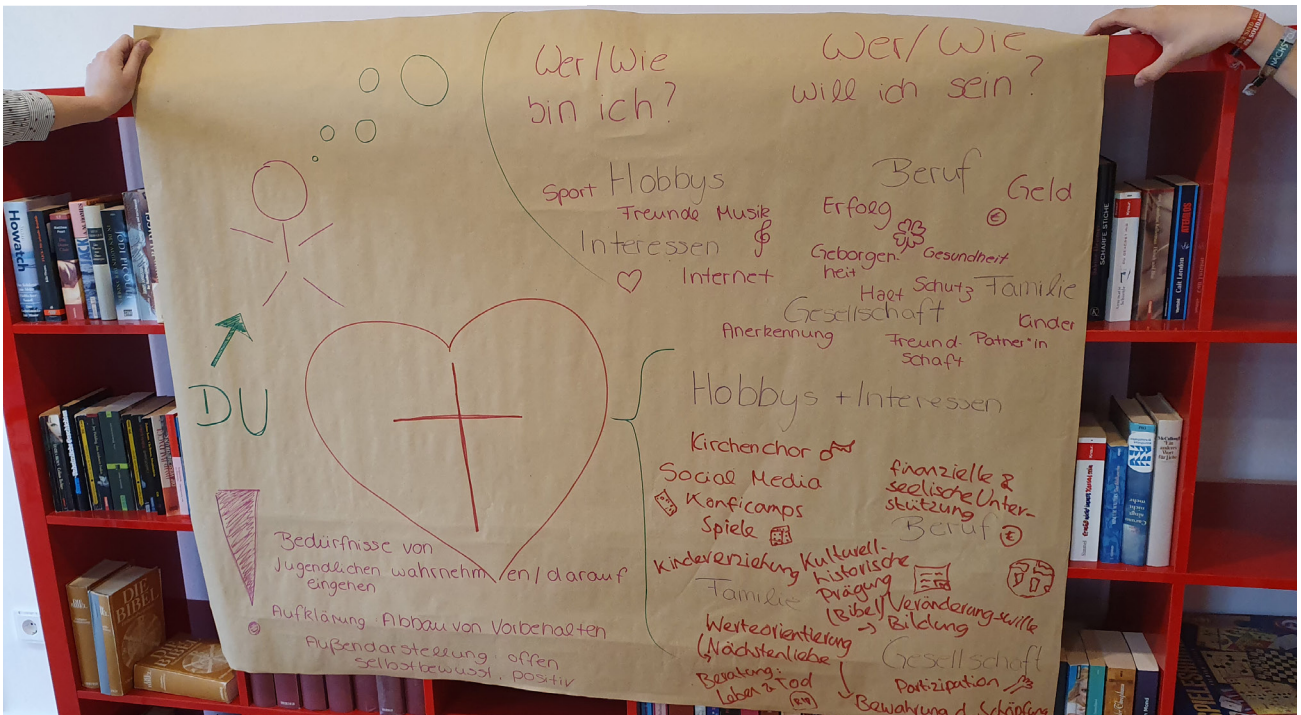 Wer/Wie
bin ich?
Wer/Wie
will ich sein?
Sport Hobbys
Freunde Musik
Interessen
Internet
Beruf
Geld
Erfolg
Geborgen-
heit
Gesundheit
Halt Schutz Familie
Gesellschaft
Kinder
Anerkennung
Freund-
schaft
Patner*in
DU
Hobbys + Interessen
Kirchenchor
Social Media
Konficamps
Spiele
finanzielle &
seelische Unter-
stützung
Beruf
Kindeverziehung
Kulturell-
historische
Prägung
(Bibel)
Familie
Veränderungswille
→ Bildung
Werteorientierung
(Nächstenliebe
Gesellschaft
Beratung:
Leben & Tod
Partizipation
Bewahrung d. Schöpfung
Bedürfnisse von
Jugendlichen wahrnehmen/darauf
eingehen
Aufklärung: Abbau von Vorbehalten
Außendarstellung: offen
selbstbewusst, positiv
Howatch
SCHARFE STICHE
ATEMLOS
DIE
BIBEL